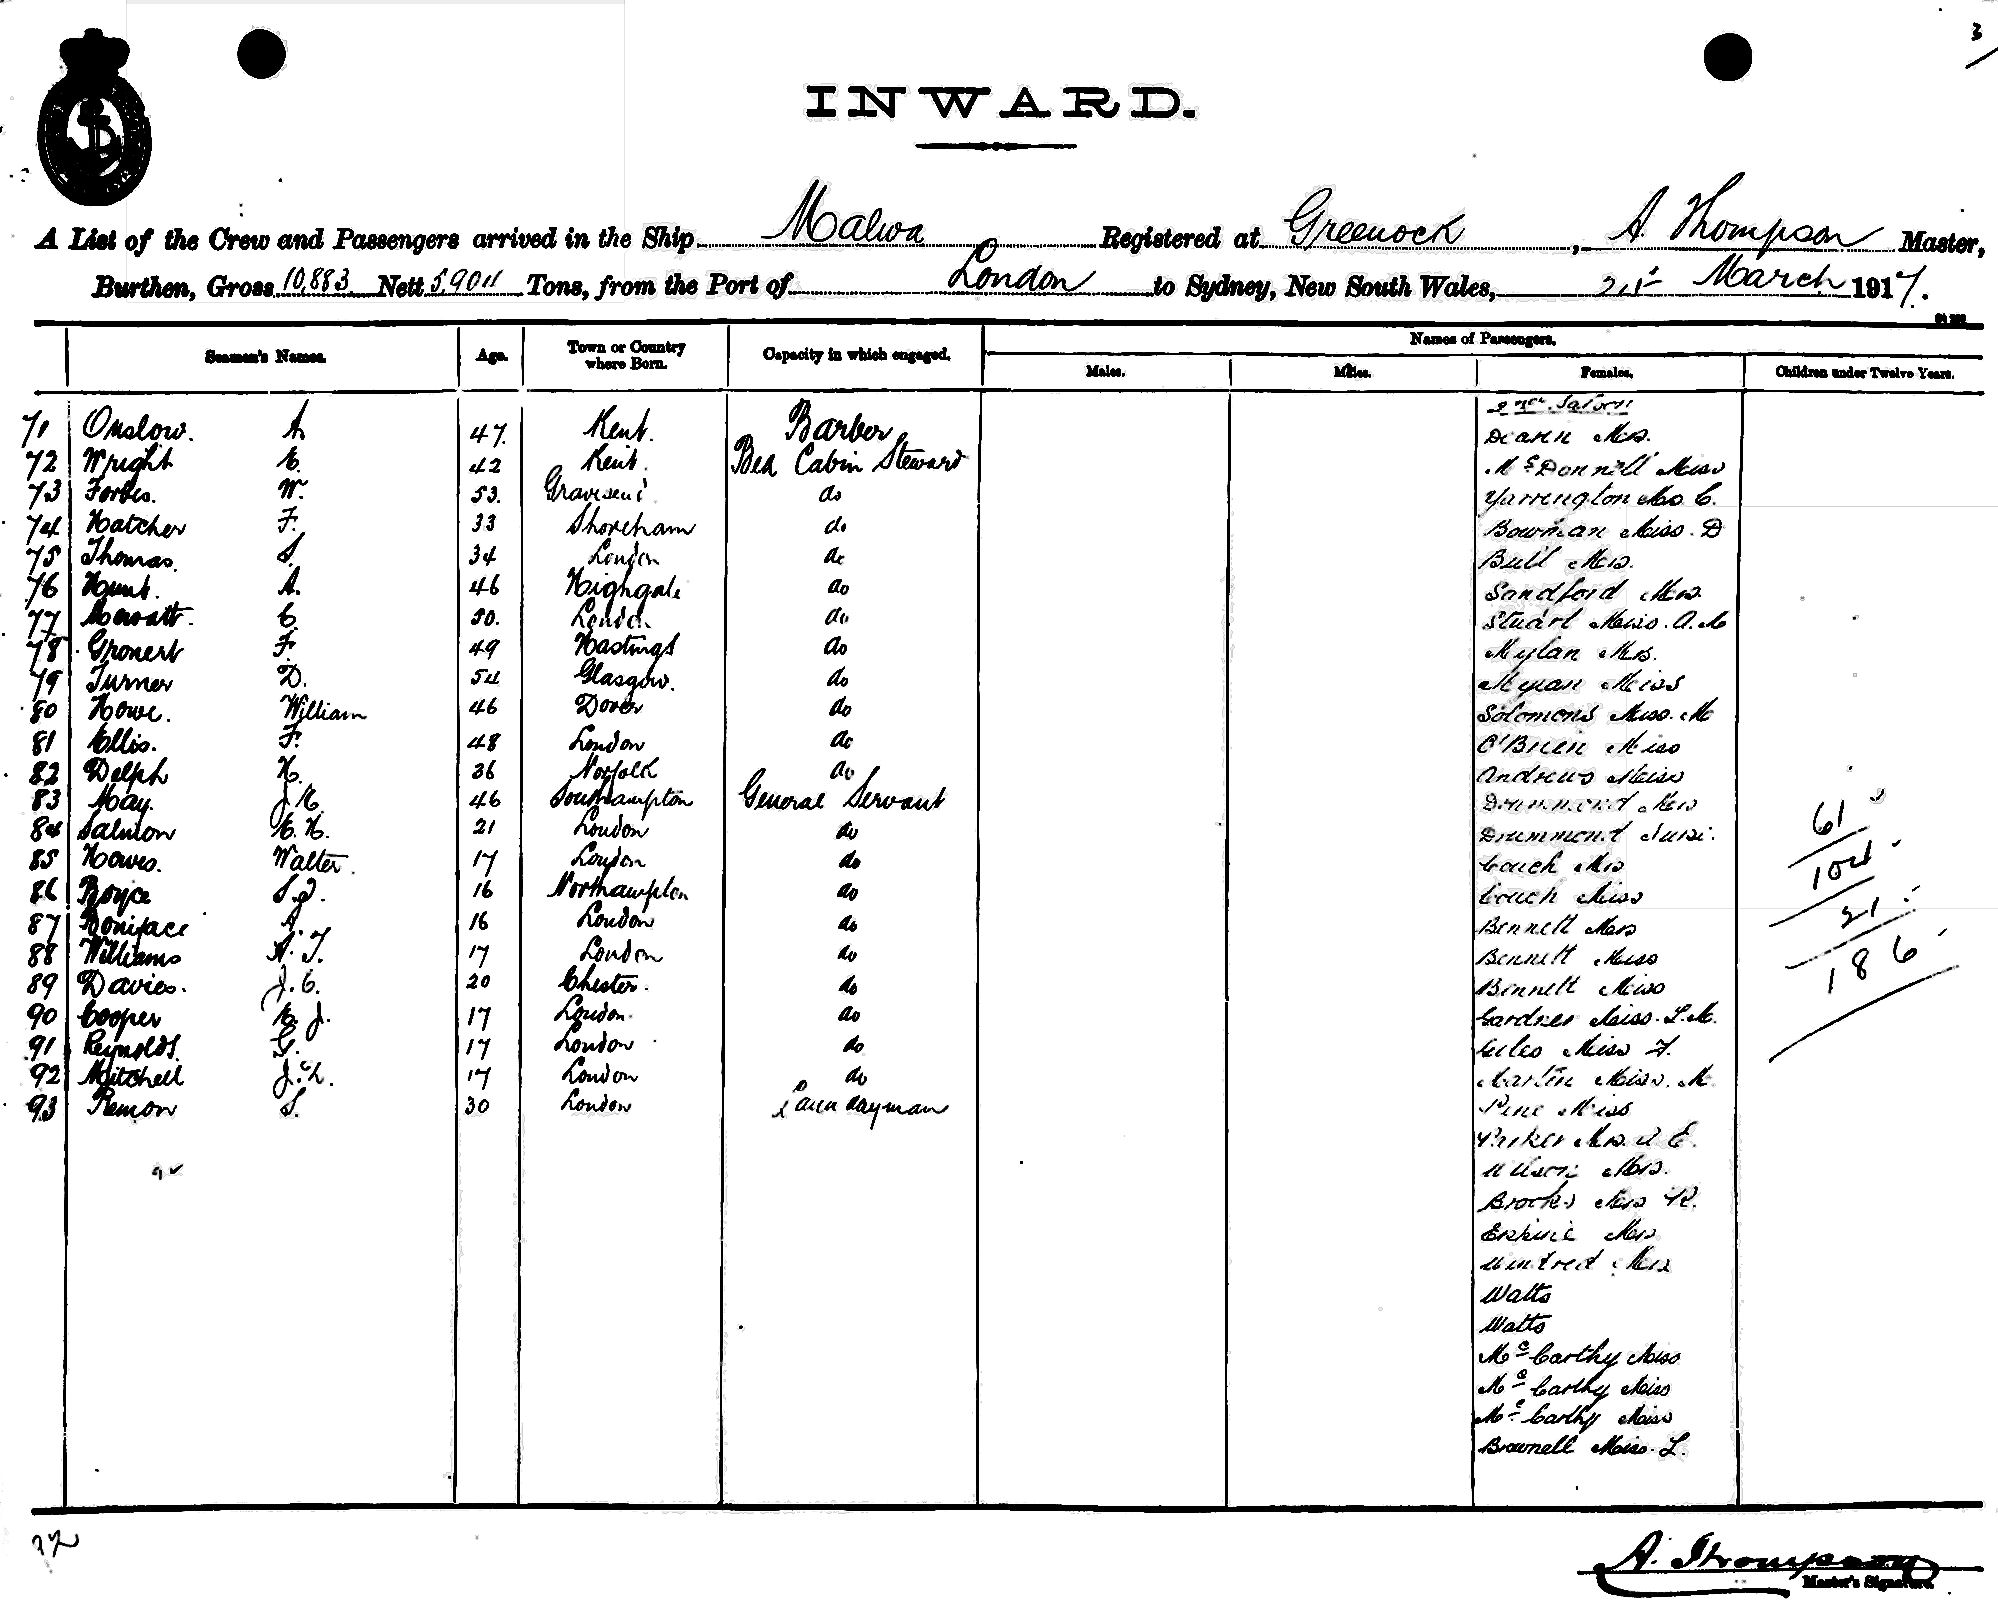 3
INWARD.
A List of the Crew and Passengers arrived in the Ship Malwa Registered at Greenock, A Thompson Master,
Burthen, Gross 10,883 Nett 5,9011 Tons, from the Port of London to Sydney, New South Wales, March 1917.
Seamen's Names. Age. Town or Country where Born. Capacity in which engaged. Names of Passengers.
Males. Males. Females. Children under Twelve Years.
2nd Saloon
71 Onslow. A. 47. Kent. Barber
72 Wright E. 42 Kent. Bed Cabin Steward
73 Forbes. W. 53. Gravesend do
74 Hatcher F. 33 Shoreham do
75 Thomas. S. 34 London do
76 Hunt. A. 46 Highgate do
77 C. 50. London do
78 Gronert F. 49 Hastings do
79 Turner D. 54 Glasgow. do
80 Howe. William 46 Dover do
81 Ellis. F. 48 London do
82 Delph H. 36 Norfolk do
83 May. J.E. 46 Southampton General Servant
84 Salmon E.H. 21 London do
85 Howes. Walter. 17 London do
86 Royce S.J. 16 Northampton do
87 Boniface A. 16 London do
88 Williams A.T. 17 London do
89 Davies. J.C. 20 Chester. do
90 Cooper E.J. 17 London. do
91 Reynolds. G. 17 London do
92 Mitchell J.L. 17 London do
93 Remon S. 30 London Laundryman
Mrs.
McDonnell Miss
Yarrington Mrs C.
Bowman Miss. D
Bull Mrs.
Sandford Mrs.
Stuart Miss. A.M
Mylan Mrs.
Miss
Solomons Miss. M
O'Brien Miss
Andrews Miss
Drummond Mrs
Drummond
Couch Mrs
Couch Miss
Bennett Mrs
Bennett Miss
Bennett Miss
Gardner Miss. L.M.
Giles Miss F.
Martin Miss. M.
Pine Miss
Parker Mrs. E.
Wilson Mrs.
Brooks Mrs R.
Erskine Mrs
Windred Mrs
Watts
Watts
McCarthy Miss
McCarthy Miss
McCarthy Miss
Brownell Miss. L.
61
104
21
186
A. Thompson
Master's Signature.